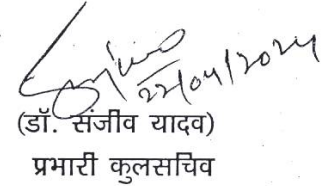 22/04/2024
(डॉ. संजीव यादव)
प्रभारी कुलसचिव